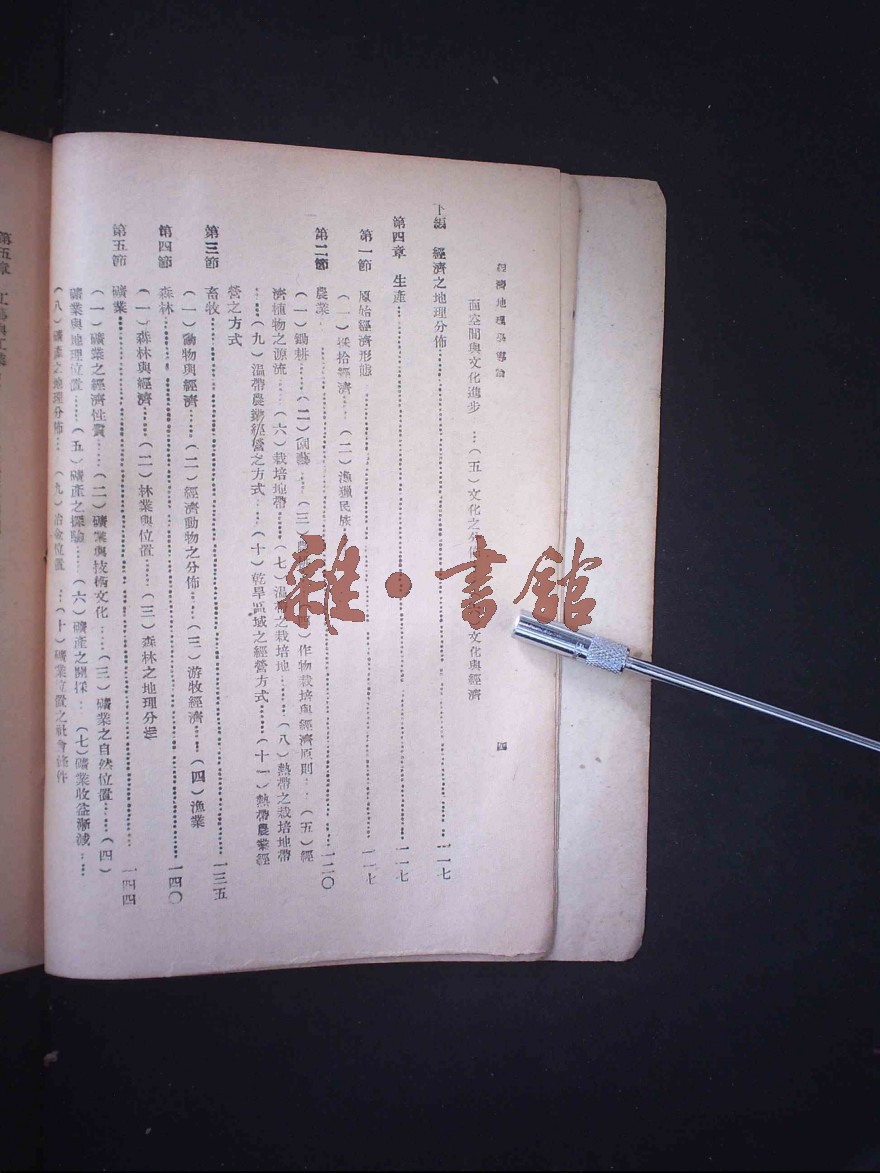 經濟地理學導論
四
面空間與文化進步…(五)文化之分佈 文化與經濟
下編 經濟之地理分佈……一一七
第四章 生產……一一七
第一節 原始經濟形態……一一七
(一)採拾經濟…(二)漁獵民族
第二節 農業……一二〇
(一)鋤耕…(二)園藝…(三) (四)作物栽培與經濟原則…(五)經
濟植物之源流…(六)栽培地帶……(七)溫帶之栽培地……(八)熱帶之栽培地帶
……(九)溫帶農業經營之方式……(十)乾旱區域之經營方式……(十一)熱帶農業經
營之方式
第三節 畜牧……一三五
(一)動物與經濟……(二)經濟動物之分佈…(三)游牧經濟……(四)漁業
第四節 森林……一四〇
(一)森林與經濟……(二)林業與位置……(三)森林之地理分佈
第五節 礦業……一四四
(一)礦業之經濟性質……(二)礦業與技術文化……(三)礦業之自然位置……(四)
礦業與地理位置……(五)礦產之探驗……(六)礦產之開採…(七)礦業收益漸減……
(八)礦產之地理分佈…(九)冶金位置…(十)礦業位置之社會條件
第五章
雜·書館